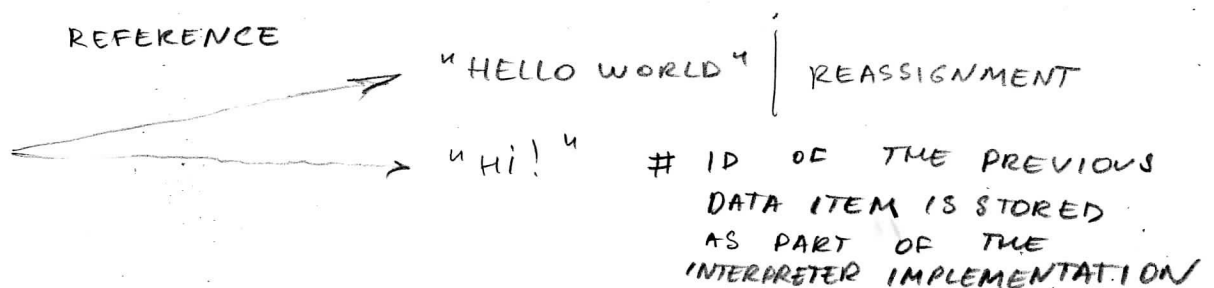 REFERENCE
"HELLO WORLD" | REASSIGNMENT
"Hi!" # ID OF THE PREVIOUS
DATA ITEM IS STORED
AS PART OF THE
INTERPRETER IMPLEMENTATION